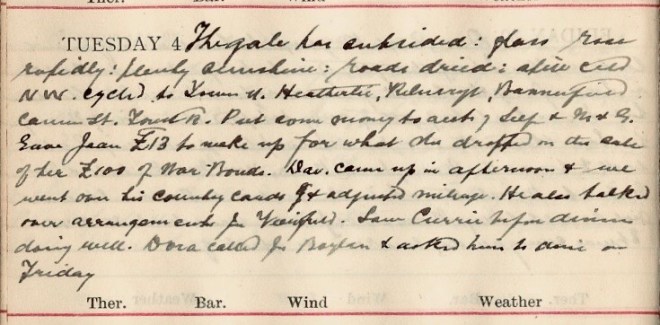 Ther. Bar. Wind Weather
TUESDAY 4 The gale has subsided: glass rose
rapidly: plenty sunshine: roads dried: a little cold
N.W. cycled to Town v.
St. Town R. Put some money to acct of Self & M & G.
Gave Jean £13 to make up for what she dropped on the sale
of her £100 of War Bonds. Dav. came up in afternoon & we
went over his county cards & adjusted mileage. He also talked
over arrangements for. Saw Currie before dinner
doing well. Dora called for Boylan & asked him to dine on
Friday
Ther. Bar. Wind Weather